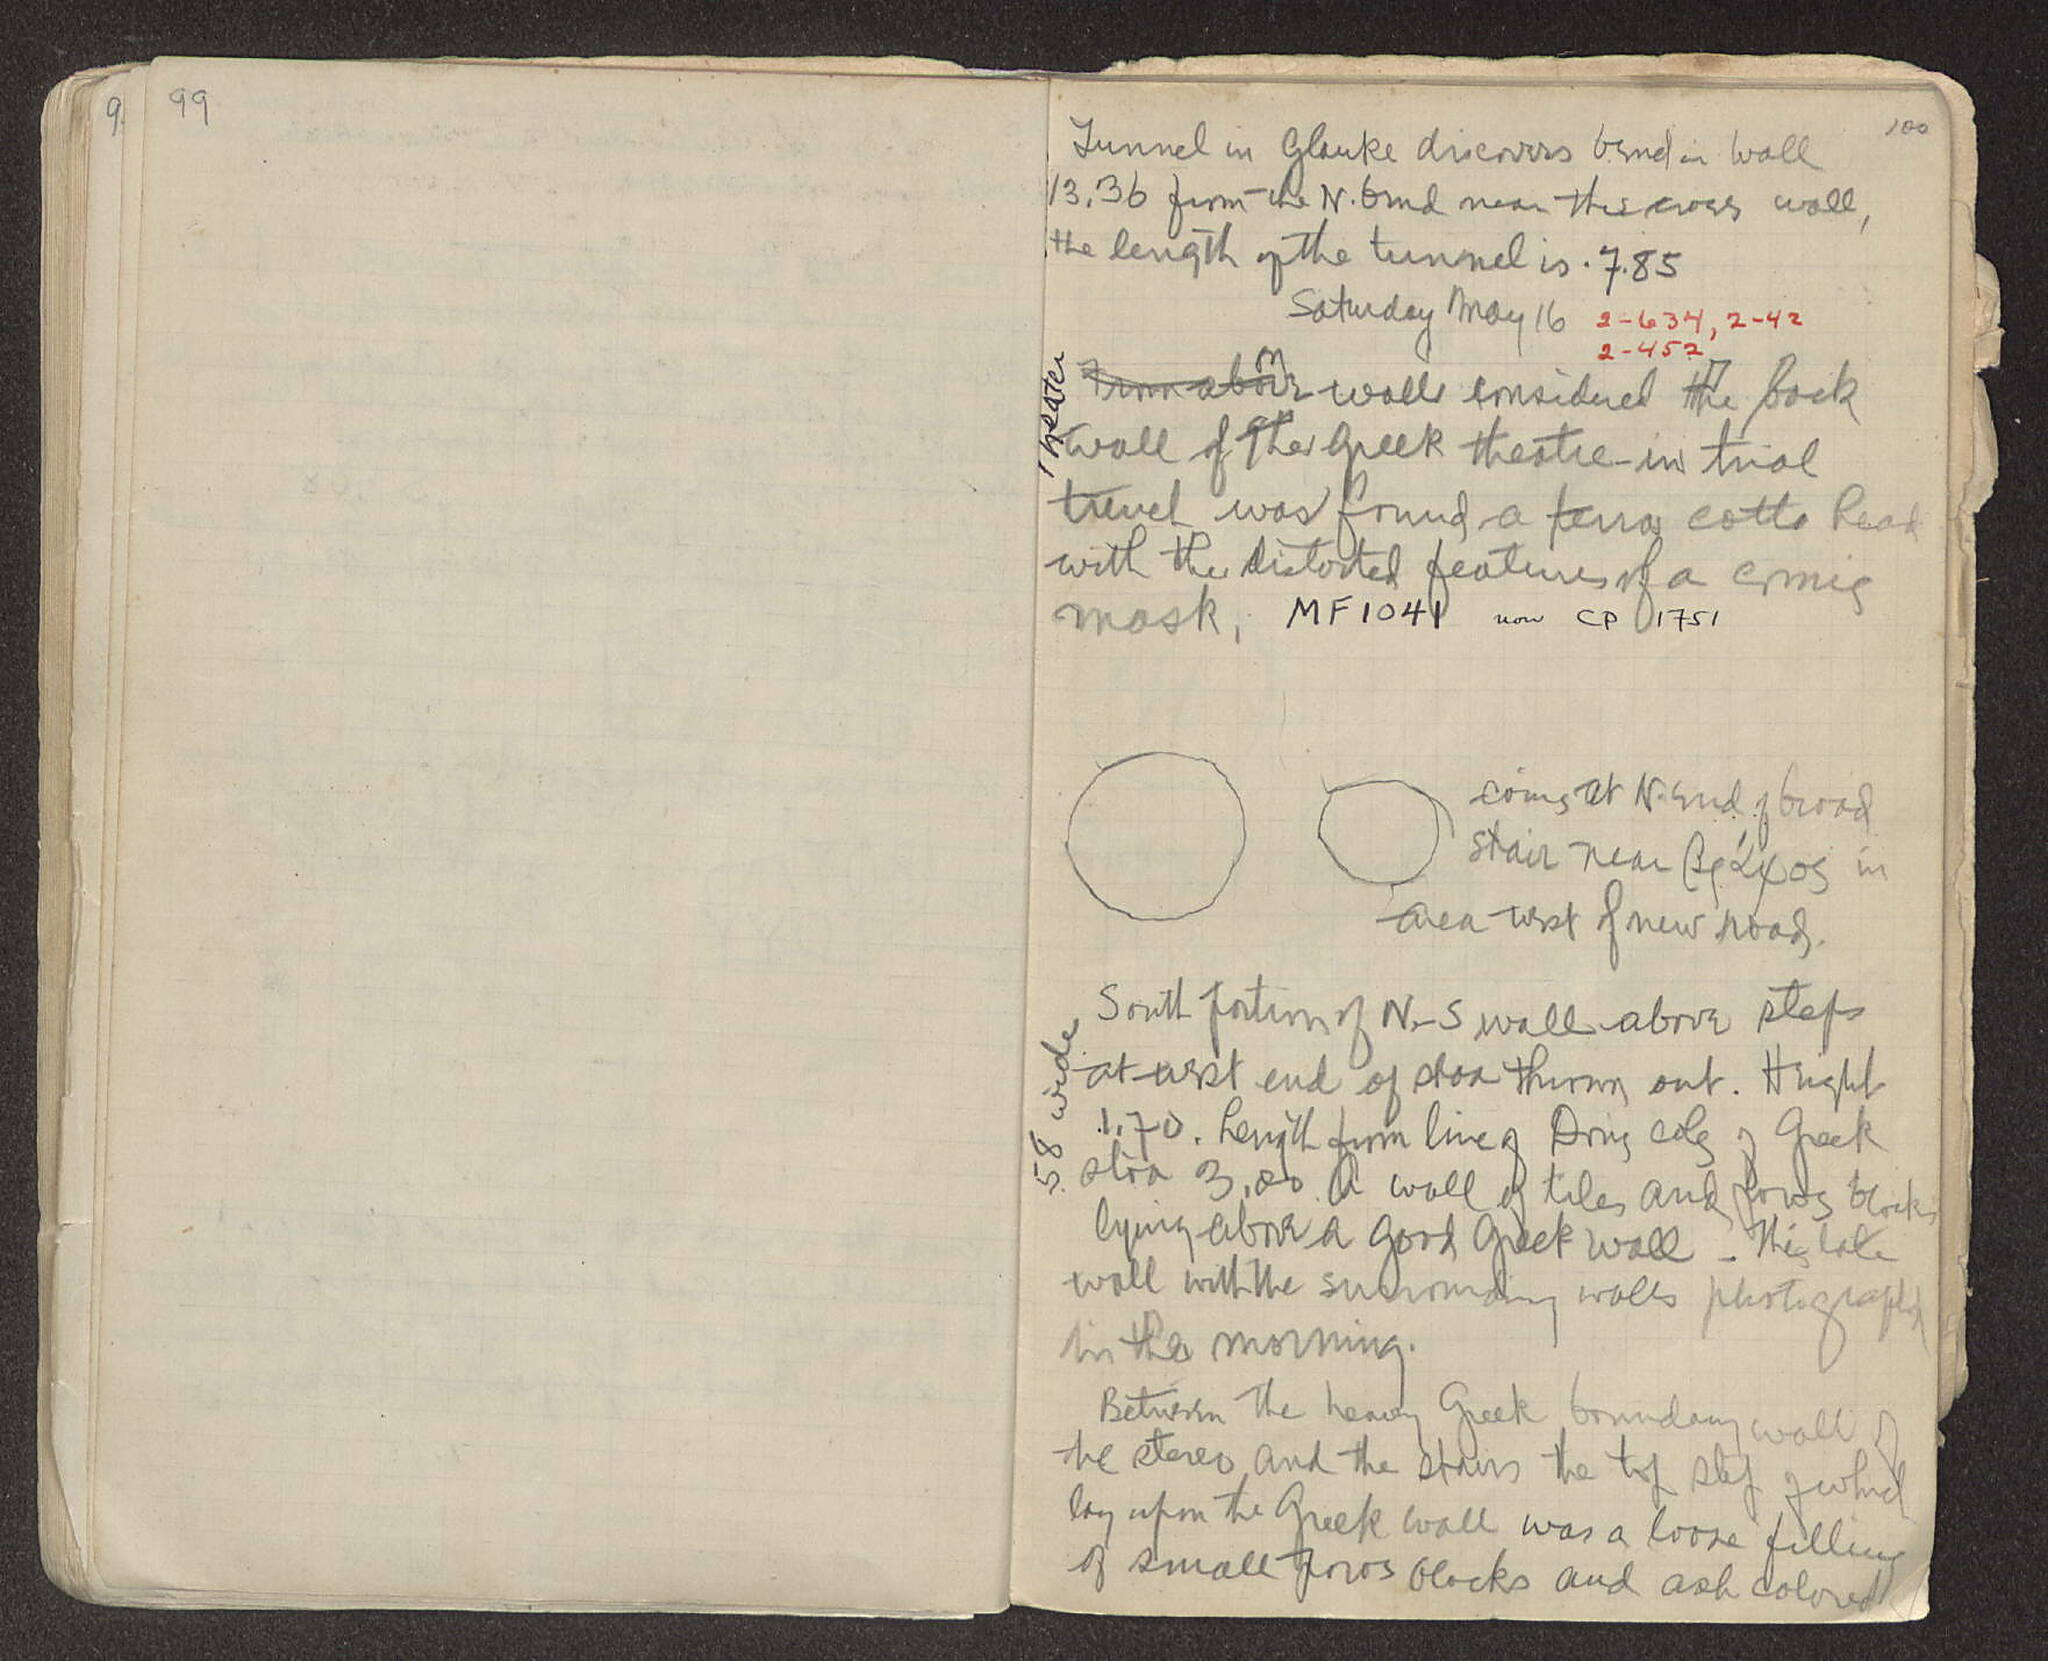 9
99
100
Tunnel in Glauke discovers bend in wall
13.36 from the N. end near this cross wall,
the length of the tunnel is .7.85
Saturday May 16 2-634, 2-42
2-452
Theater
on walls considered the back
wall of the Greek theatre in trial
trench was found a terra cotta head
with the distorted features of a comic
mask. MF1041 now CP 1751
coins at N. end of broad
stair near βράχος in
area west of new road.
South portion of N-S wall above steps
at west end of stoa thrown out. Height
1.70. Length from line of Doric cols of Greek
stoa 3.80 A wall of tiles and poros blocks
.58 wide
lying above a good Greek wall - This late
wall with the surrounding walls photographed
in the morning.
Between the heavy Greek boundary wall of
the stereo and the stairs the top step of which
lay upon the Greek wall was a loose filling
of small poros blocks and ash colored